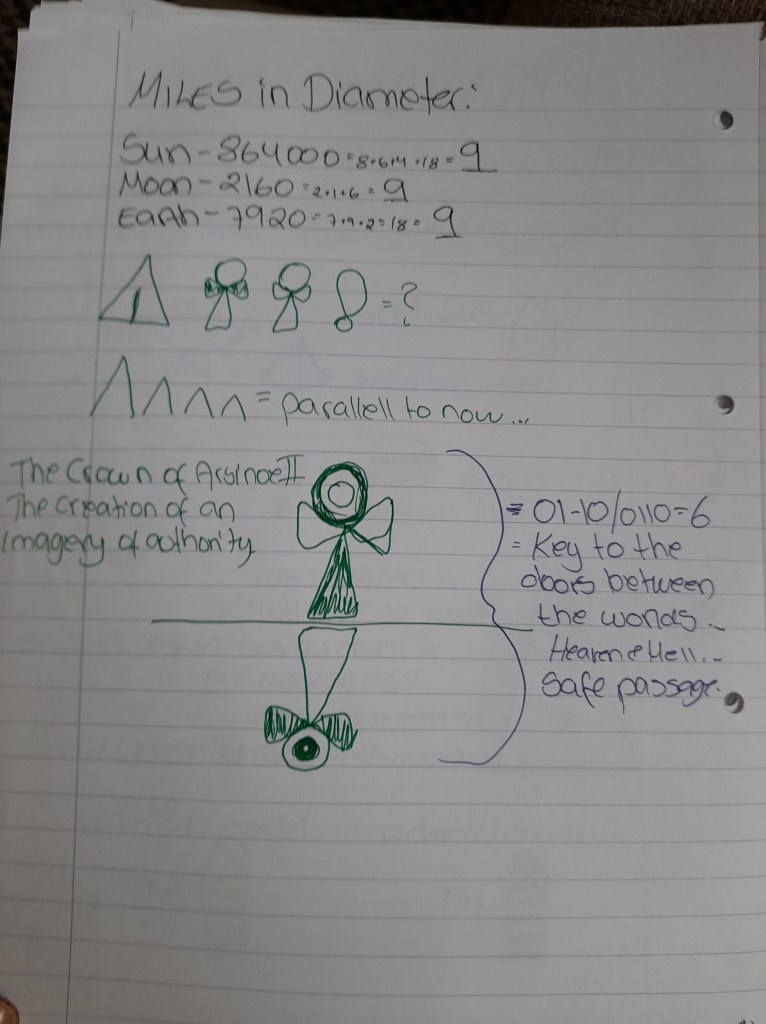 MILES in Diameter:
Sun - 864000 = 8+6+4 = 18 = 9
Moon - 2160 = 2+1+6 = 9
Earth - 7920 = 7+9+2 = 18 = 9
= ?
= parallell to now...
The Crown of Arsinoe II
The Creation of an
Imagery of authority
= 01-10/0110=6
= Key to the
doors between
the worlds -
Heaven & Hell. -
Safe passage.